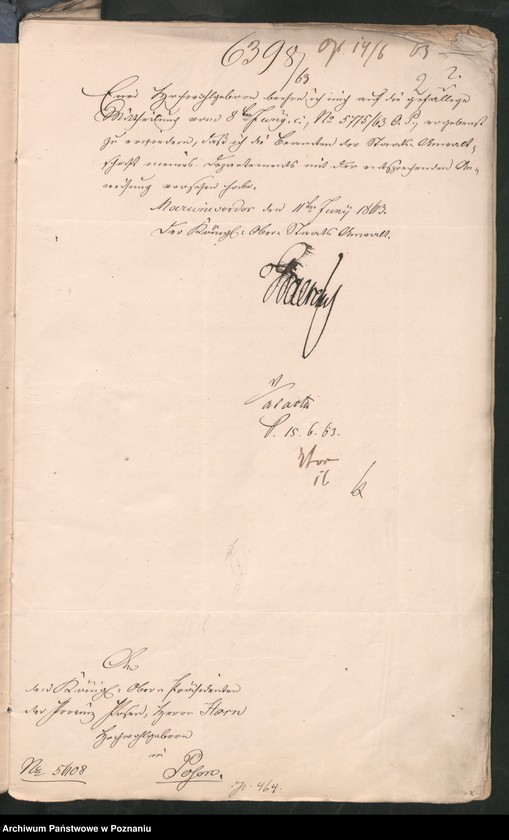 6398/63
pr. 14/6 63
2.
Euer Hochwohlgeboren beehre ich mich auf die gefällige
Mittheilung vom 8ten Juny c., No 5775/63 O. P., ergebenst
zu erwiedern, daß ich die Beamten der Staats-Anwalt-
schaft meines Departements mit der entsprechenden An-
weisung versehen habe.
Marienwerder den 11ten Juny 1863.
Der Königl. Ober-Staats-Anwalt.
ad acta
P. 15. 6. 63.
An
den Königl. Ober-Präsidenten
der Provinz Posen, Herrn Horn
Hochwohlgeboren
in
Posen.
No 5608
p. 464.
Archiwum Państwowe w Poznaniu